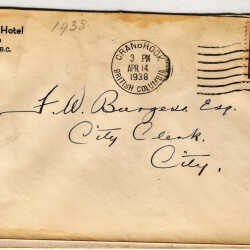 Hotel
B.C.
1938
CRANBROOK
3 PM
APR 14
1938
BRITISH COLUMBIA
F. W. Burgess Esq.
City Clerk,
City.